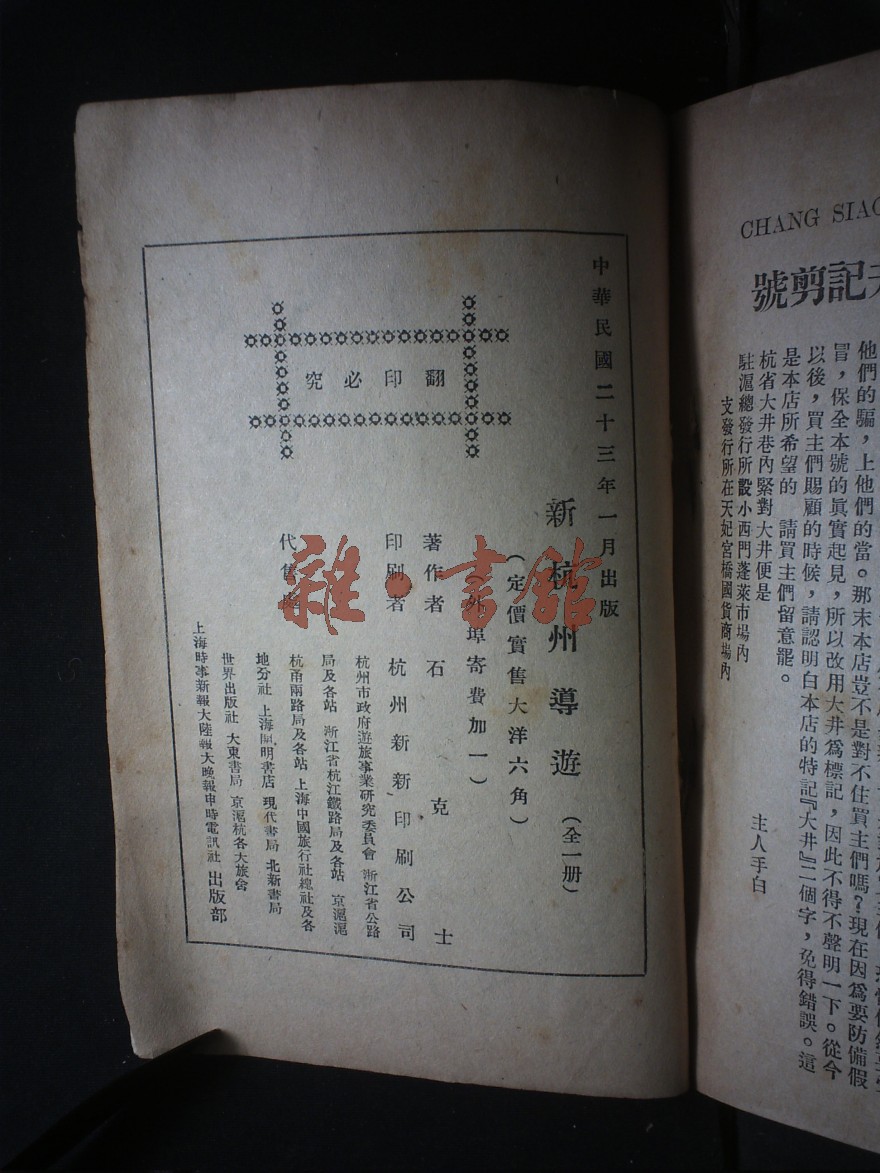 中華民國二十三年一月出版
翻印必究
新杭州導遊（全一册）
（定價實售大洋六角）
外埠寄費加一）
著作者 石克士
印刷者 杭州新新印刷公司
代售處
杭州市政府遊旅事業研究委員會 浙江省公路
局及各站 浙江省杭江鐵路局及各站 京滬滬
杭甬兩路局及各站 上海中國旅行社總社及各
地分社 上海開明書店 現代書局 北新書局
世界出版社 大東書局 京滬杭各大旅舍
上海時事新報大陸報大晚報申時電訊社 出版部
雜·書館
CHANG SIAO
記剪號
他們的騙，上他們的當。那末本店豈不是對不住買主們嗎？現在因爲要防備假
冒，保全本號的眞實起見，所以改用大井爲標記，因此不得不聲明一下。從今
以後，買主們賜顧的時候，請認明白本店的特記『大井』二個字，免得錯誤。這
是本店所希望的 請買主們留意罷。
主人手白
杭省大井巷內緊對大井便是
駐滬總發行所設小西門蓬萊市場內
支發行所在天妃宮橋國貨商場內